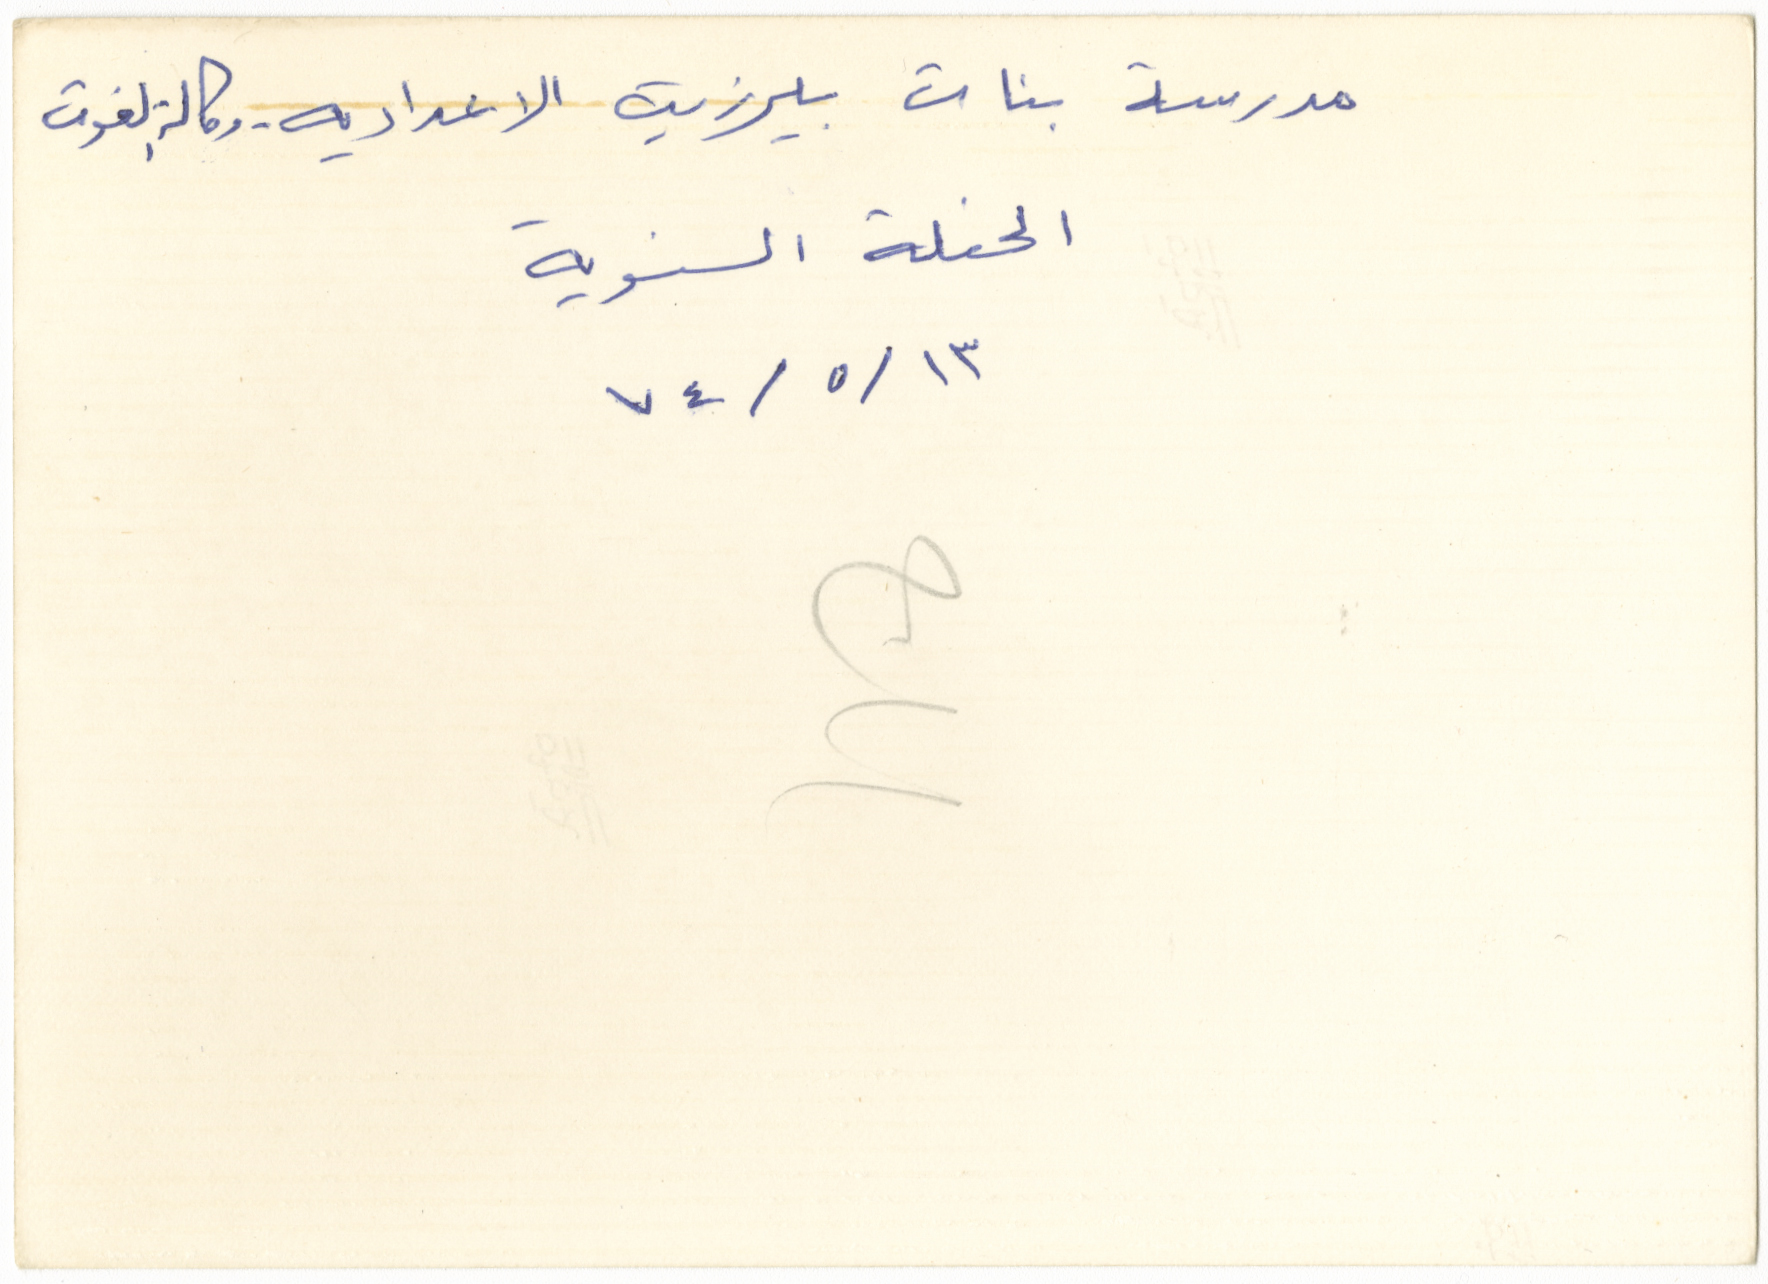 مدرسة بنات بيرزيت الاعدادية - وكالة الغوث
الحفلة السنوية
١٣ / ٥ / ٧٤